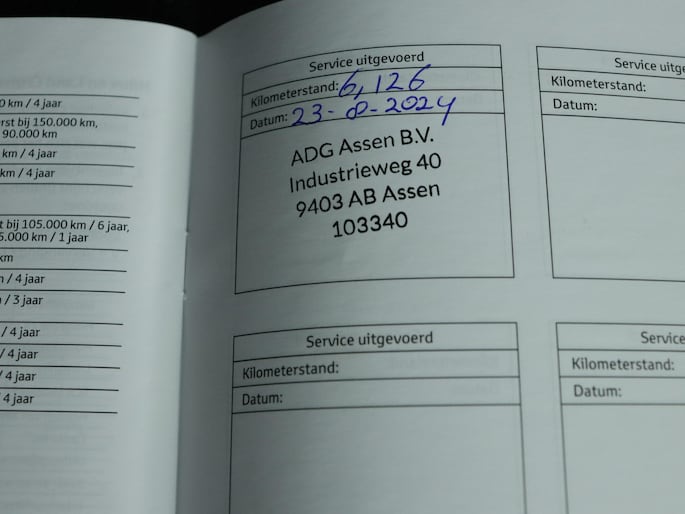 0 km / 4 jaar
rst bij 150.000 km,
90.000 km
km / 4 jaar
km / 4 jaar
t bij 105.000 km / 6 jaar,
5.000 km / 1 jaar
km
/ 4 jaar
/ 3 jaar
/ 4 jaar
/ 4 jaar
/ 4 jaar
4 jaar
Service uitgevoerd
Kilometerstand: 6,126
Datum: 23-8-2024
ADG Assen B.V.
Industrieweg 40
9403 AB Assen
103340
Service uitge
Kilometerstand:
Datum:
Service uitgevoerd
Kilometerstand:
Datum:
Service
Kilometerstand:
Datum: